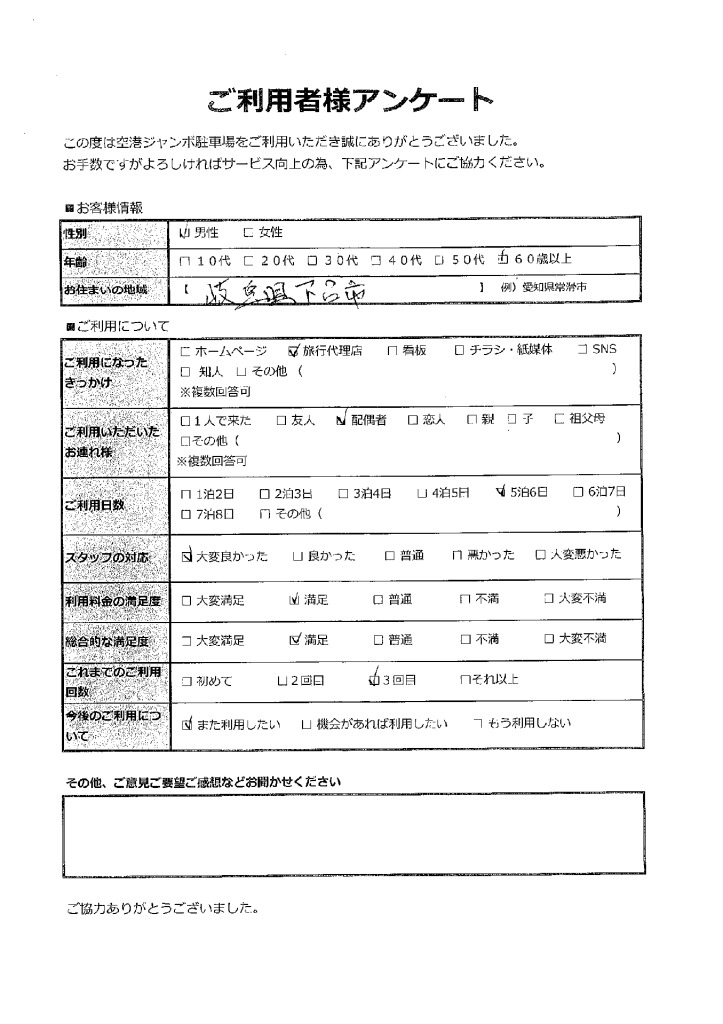 ご利用者様アンケート
この度は空港ジャンボ駐車場をご利用いただき誠にありがとうございました。
お手数ですがよろしければサービス向上の為、下記アンケートにご協力ください。
■お客様情報
性別 ☑男性 □女性
年齢 □10代 □20代 □30代 □40代 □50代 ☑60歳以上
お住まいの地域 【 岐阜県下呂市 】 例）愛知県常滑市
■ご利用について
ご利用になった
きっかけ
□ホームページ ☑旅行代理店 □看板 □チラシ・紙媒体 □SNS
□ 知人 □その他（ ）
※複数回答可
ご利用いただいた
お連れ様
□1人で来た □友人 ☑配偶者 □恋人 □親 □子 □祖父母
□その他（ ）
※複数回答可
ご利用日数
□1泊2日 □2泊3日 □3泊4日 □4泊5日 ☑5泊6日 □6泊7日
□7泊8日 □その他（ ）
スタッフの対応 ☑大変良かった □良かった □普通 □悪かった □大変悪かった
利用料金の満足度 □大変満足 ☑満足 □普通 □不満 □大変不満
総合的な満足度 □大変満足 ☑満足 □普通 □不満 □大変不満
これまでのご利用
回数
□初めて □2回目 ☑3回目 □それ以上
今後のご利用につ
いて
☑また利用したい □機会があれば利用したい □もう利用しない
その他、ご意見ご要望ご感想などお聞かせください
ご協力ありがとうございました。